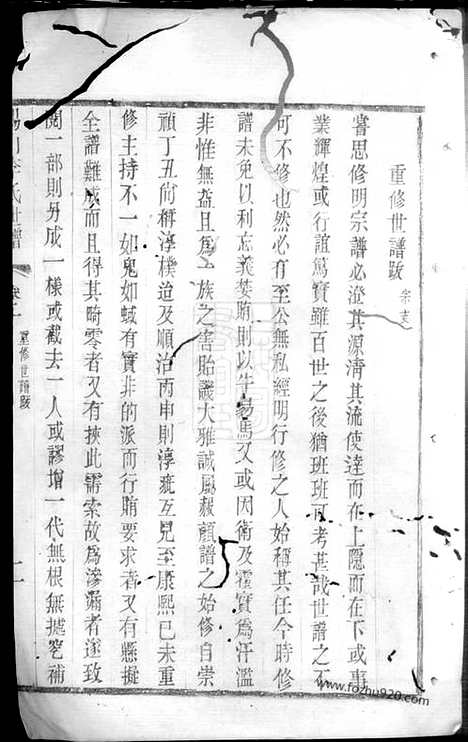 重修世譜跋　宗志
嘗思修明宗譜必澄其源清其流使達而在上隱而在下或事
業輝煌或行誼篤實雖百世之後猶班班可考甚哉世譜之不
可不修也然必有至公無私經明行修之人始稱其任今時修
譜未免以利忘義婪賄則以牛易馬又或因衛及霍實為汗濫
非惟無益且為一族之害貽譏大雅誠風教顧譜之始修自崇
禎丁丑尚稱淳樸迨及順治丙申則淳疵互見至康熙己未重
修主持不一如鬼如蜮有實非的派而行賄要求者又有懸擬
全譜難成而且得其畸零者又有挾此需索故為滲漏者遂致
閱一部則另成一樣或截去一人或謬增一代無根無據窀補
李氏世譜　卷一　重修世譜跋　一
www.fozhu920.com